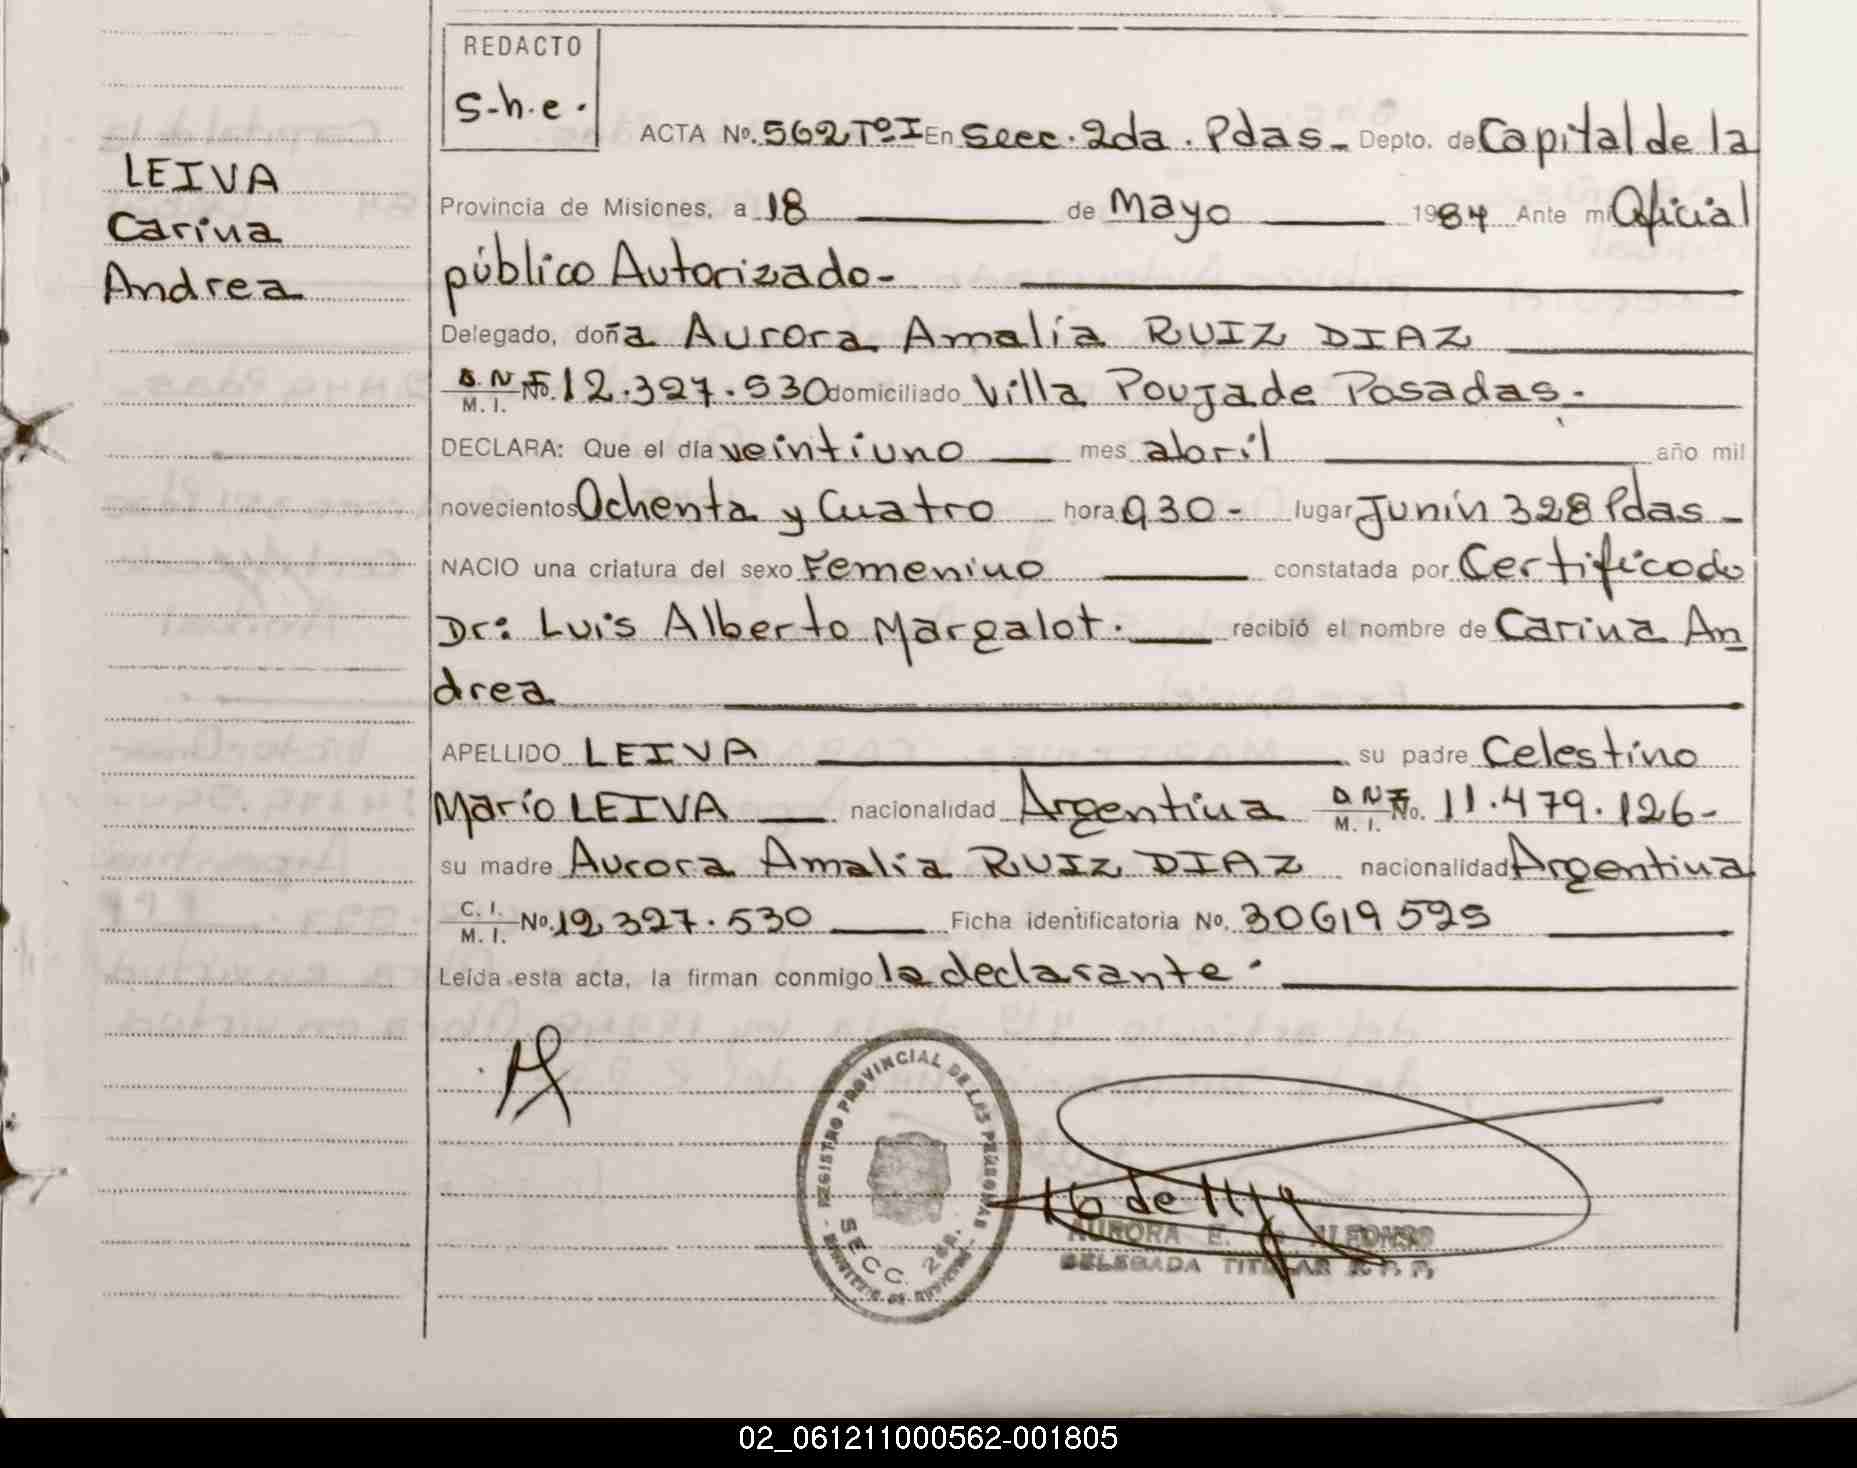 REDACTO
S-h-e.
ACTA Nº. 562 Tº I En Secc. 2da. Pdas - Depto. de Capital de la
LEIVA
Carina
Andrea
Provincia de Misiones, a 18 de Mayo 1984 Ante mi Oficial
público Autorizado-
Delegado, doña Aurora Amalia RUIZ DIAZ
D.N.I M. I. No. 12.327.530 domiciliado Villa Poujade Posadas.-
DECLARA: Que el día veintiuno mes abril año mil
novecientos Ochenta y Cuatro hora 930- lugar Junín 328 Pdas-
NACIO una criatura del sexo Femenino constatada por Certificado
Dr: Luis Alberto Margalot. recibió el nombre de Carina An
drea
APELLIDO LEIVA su padre Celestino
Mario LEIVA nacionalidad Argentina D N I M. I. No. 11.479.126-
su madre Aurora Amalia RUIZ DIAZ nacionalidad Argentina
C. I. M. I. No. 12 327.530 Ficha identificatoria No. 30619525
Leída esta acta, la firman conmigo la declarante.
REGISTRO PROVINCIAL DE LAS PERSONAS
SECC. 2da.
AURORA E. ALFONSO
DELEGADA TITULAR R. P. P.
02_061211000562-001805